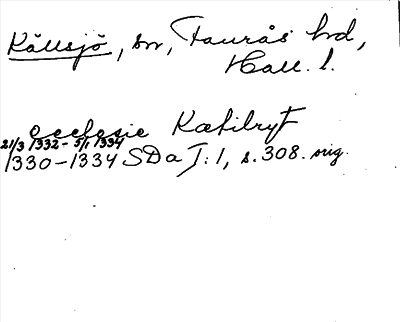 Källsjö, sn, Faurås hd,
Hall. l.
ecclesie Kætilryt
21/3 1332 - 5/1 1334
1330-1334 SDa I:1, s. 308. orig.